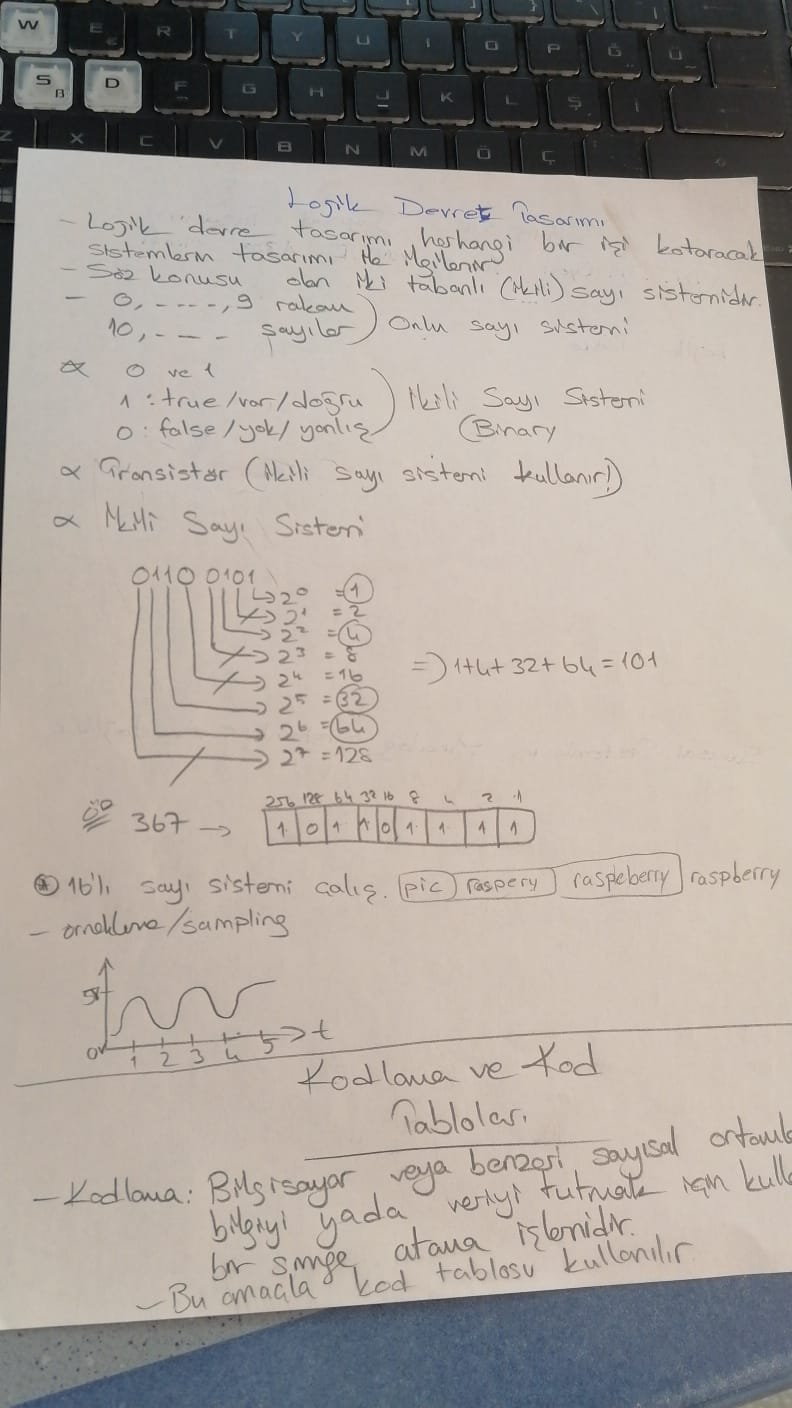 W E R T Y U I O P Ğ Ü
S B D F G H J K L Ş İ
Z X C V B N M Ö Ç
Lojik Devre Tasarımı
- Lojik devre tasarımı herhangi bir işi kotaracak
sistemlerin tasarımı ile ilgilenir
- Söz konusu olan iki tabanlı (ikili) sayı sistemidir.
- 0, - - - -, 9 rakam
10, - - - sayılar ) Onlu sayı sistemi
α 0 ve 1
1 : true/var/doğru ) İkili Sayı Sistemi
0 : false/yok/yanlış (Binary
α Transistör (ikili sayı sistemi kullanır!)
α İkili Sayı Sistemi
0110 0101
2⁰ = 1
2¹ = 2
2² = 4
2³ = 8
2⁴ = 16
2⁵ = 32
2⁶ = 64
2⁷ = 128
=> 1+4+32+64=101
256 128 64 32 16 8 4 2 1
ör 367 → 1 0 1 1 0 1 1 1 1
* 16'lı sayı sistemi çalış. pic raspery raspeberry raspberry
- örnekleme/sampling
5V
0V 1 2 3 4 5 t
Kodlama ve Kod
Tabloları
- Kodlama: Bilgisayar veya benzeri sayısal
bilgiyi yada veriyi tutmak için
bir simge atama işlemidir.
- Bu amaçla kod tablosu kullanılır